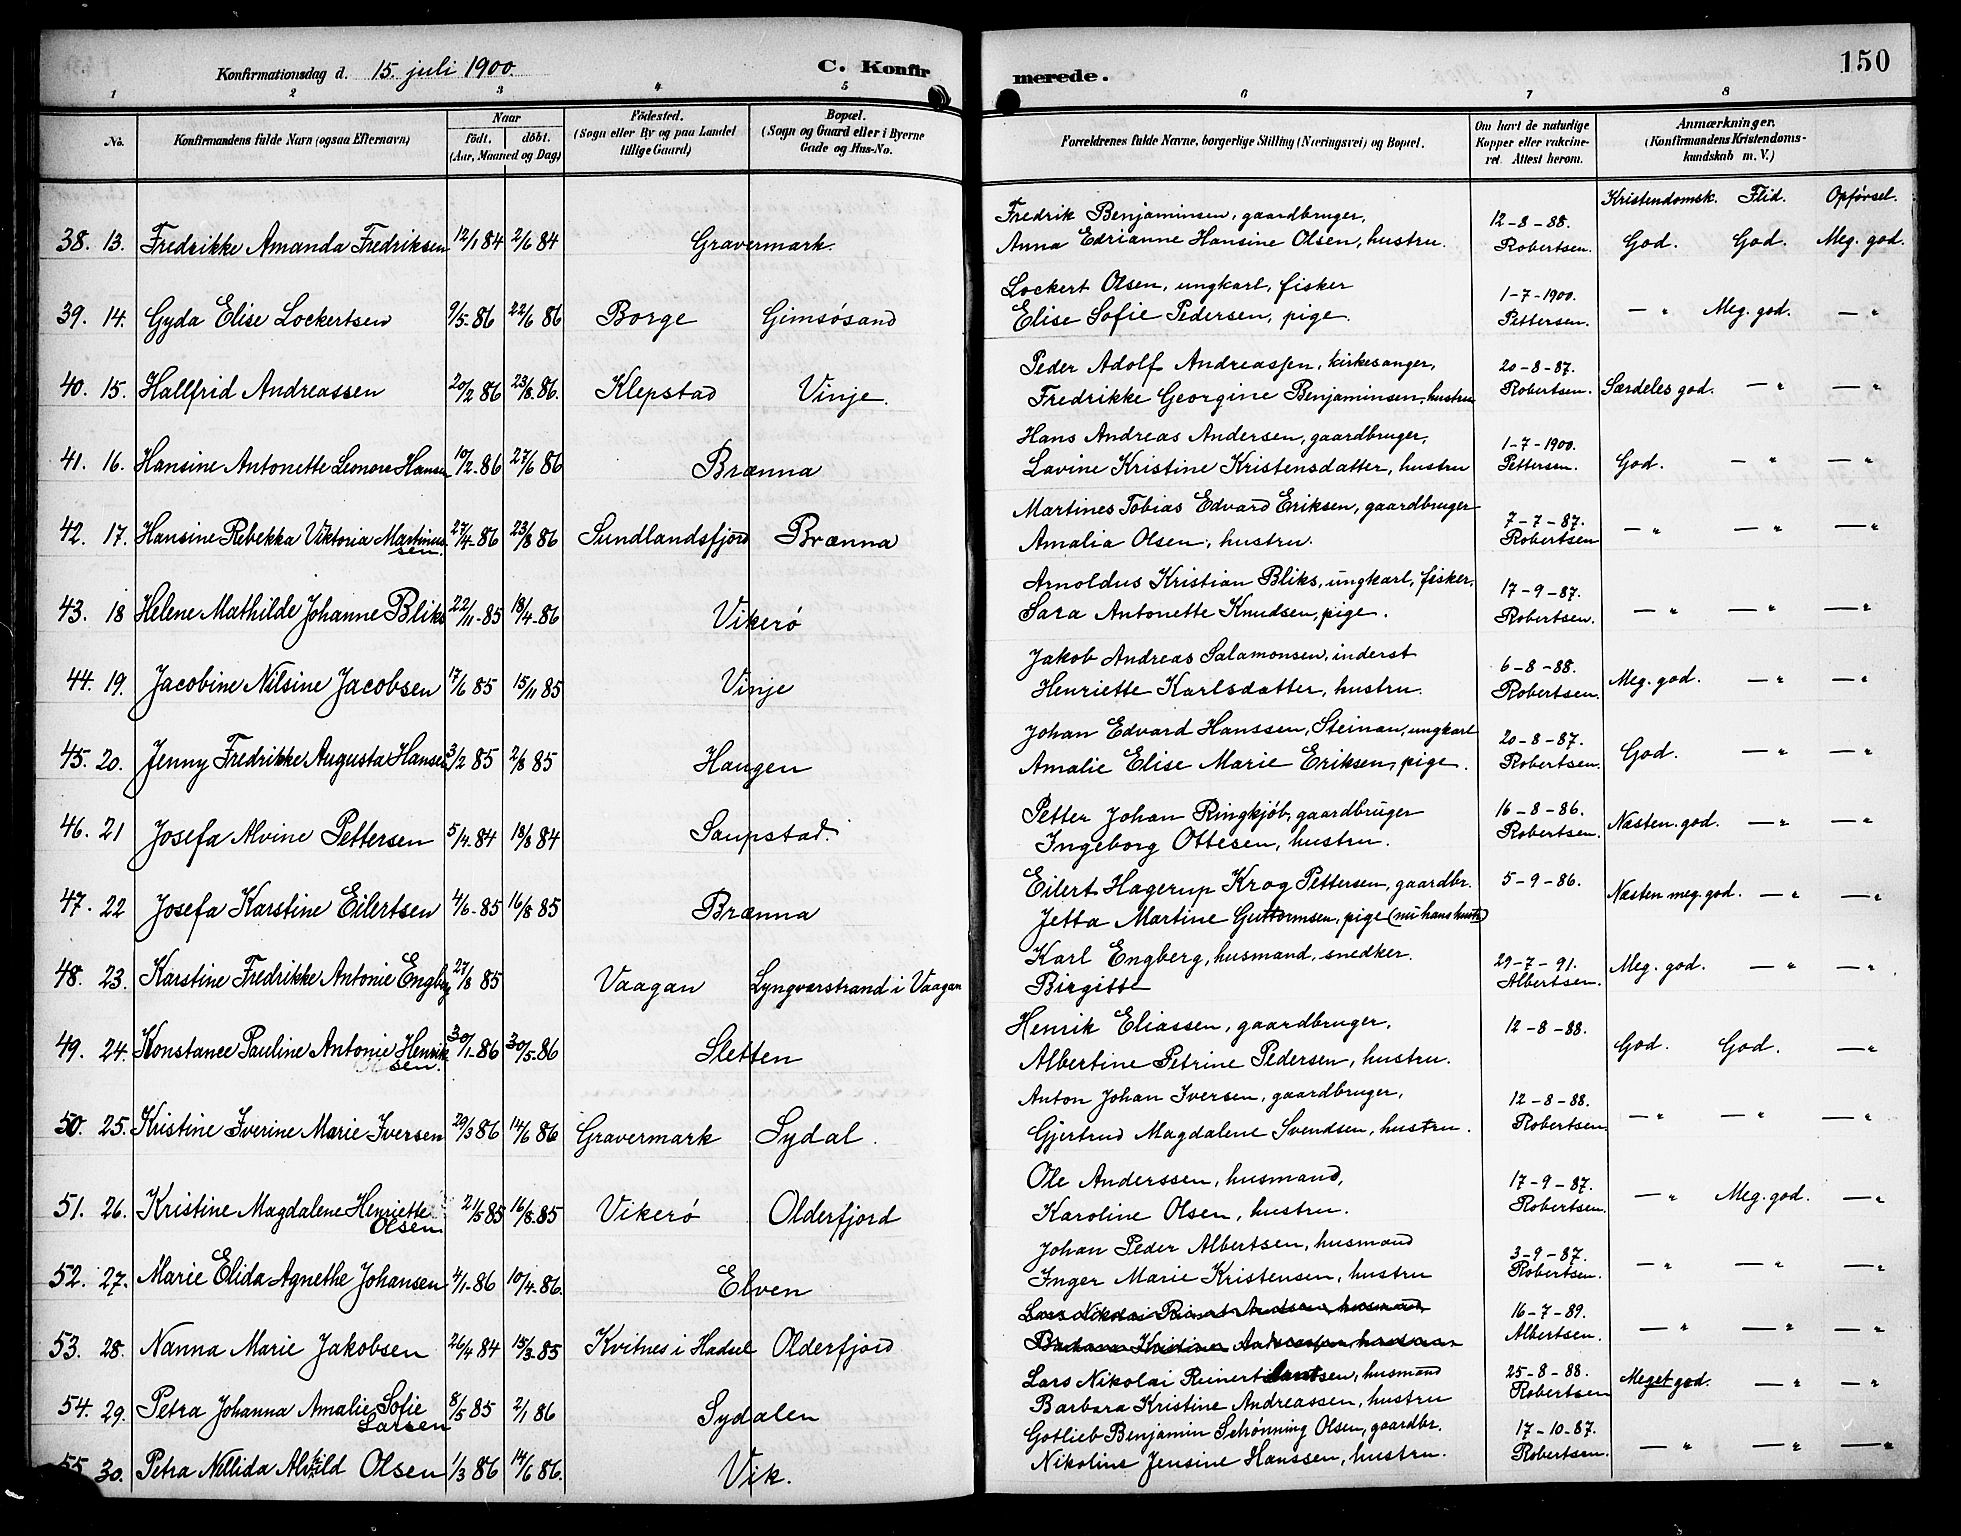 Konfirmationsdag d. 15. juli 1900. C. Konfir merede. 150
1 2 3 4 5 6 7 8
No. Konfirmandens fulde Navn (ogsaa Efternavn) Naar födt. döbt. (Aar, Maaned og Dag) Födested. (Sogn eller By og paa Landet tillige Gaard) Bopæl. (Sogn og Gaard eller i Byerne Gade og Hus-No. Forældrenes fulde Navne, borgerlige Stilling (Næringsvei) og Bopæl. Om havt de naturlige Kopper eller vakcineret. Attest herom. Anmærkninger. (Konfirmandens Kristendomskundskab m. V.)
Kristendomsk. Flid. Opførsel.
38. 13. Fredrikke Amanda Fredriksen 12/1 84 2/6 84 Gravermark. Fredrik Benjaminsen, gaardbruger, 12-8-88.
Anna Edrianne Hansine Olsen, hustru. Robertsen. God. God. Meg. god.
39. 14. Gyda Elise Lockertsen 9/5-86 22/6 86 Borge Gimsøsand Lockert Olsen, ungkarl, fisker 1-7-1900.
Elise Sofie Pedersen, pige. Pettersen. — " Meg. god. — "
40. 15. Hallfrid Andreassen 20/2 86 23/8-86. Klepstad Vinje. Peder Adolf Andreassen, kirkesanger, 20-8-87.
Fredrikke Georgine Benjaminsen, hustru Robertsen. Særdeles god. — " — "
41. 16. Hansine Antonette Leonore Hansen 10/2-86 27/6 86 Brænna Hans Andreas Andersen, gaardbruger, 1-7-1900.
Lavine Kristine Kristensdatter, hustru Pettersen. God. — " — "
42. 17. Hansine Rebekka Viktoria Martinus 27/4-86 23/8 86 Sundlandsfjord Brænna Martines Tobias Edvard Eriksen, gaardbruger 7-7-87.
sen. Amalia Olsen, hustru. Robertsen — " — " — "
43. 18 Helene Mathilde Johanne Bliks 22/11-85 18/4-86 Vikerø Arnoldus Kristian Bliks, ungkarl, fisker, 17-9-87.
Sara Antonette Knudsen, pige. Robertsen. — " — " — "
44. 19. Jacobine Nilsine Jacobsen 17/6 85 15/11 85 Vinje Jakob Andreas Salamonsen, inderst 6-8-88.
Henriette Karlsdatter, hustru. Robertsen. Meg. god. — " — "
45. 20. Jenny Fredrikke Augusta Hansen 3/2 85 2/8 85 Haugen Johan Edvard Hanssen, Steinan, ungkarl 20-8-87.
Amalie Elise Marie Eriksen, pige. Robertsen. God. — " — "
46. 21 Josefa Alvine Pettersen 5/4-84 18/8 84 Saupstad. Petter Johan Ringkjøb, gaardbruger 16-8-86.
Ingeborg Ottesen, hustru. Robertsen. Næsten. god. — " — "
47. 22 Josefa Karstine Eilertsen 4/6-85 16/8 85 Brænna Eilert Hagerup Krog Pettersen, gaardbr. 5-9-86.
Jetta Martine Guttormsen, pige (nu hans hustr) Næsten meg. god. — " — "
48. 23. Karstine Fredrikke Antonie Engberg 27/8 85 Vaagan Lyngværstrand i Vaagan Karl Engberg, husmand, snedker. 29-7-91.
Birgitte Albertsen. Meg. god. — " — "
49. 24. Konstance Pauline Antonie Henrik 30/1-86 30/5-86 Sletten Henrik Eliassen, gaardbruger, 12-8-88.
sen. Albertine Petrine Pedersen, hustru. God. God. — "
50. 25. Kristine Iverine Marie Iversen 29/3 86 14/6 86 Gravermark Sydal. Anton Johan Iversen, gaardbruger, 12-8-88.
Gjertrud Magdalene Svendsen, hustru. Robertsen. — " — " — "
51. 26. Kristine Magdalene Henriette 21/5 85 16/8-85 Vikerø Olderfjord Ole Anderssen, husmand, 17-9-87.
Olsen. Karoline Olsen, hustru. Robertsen. — " Meg. god. — "
52. 27. Marie Elida Agnethe Johansen 4/1-86 10/4-86. Elven Johan Peder Albertsen, husmand 3-9-87.
Inger Marie Kristensen, hustru Robertsen. — " — " — "
53. 28. Nanna Marie Jakobsen 26/4 84 15/3-85 Kvitnes i Hadsel Olderfjord 16-7-89.
Albertsen. — " — " — "
54. 29. Petra Johanna Amalie Sofie 8/5 85 2/1 86 Sydalen Lars Nikolai Reinert, husmand 25-8-88. Meget god. — " — "
Larsen Barbara Kristine Andreassen, hustru Robertsen
55 30. Petra Nellida Alvhild Olsen 1/3 86 14/6 86. Vik. Gotlieb Benjamin Schønning Olsen, gaardbr. 17-10-87.
Nikoline Jensine Hanssen, hustru. Robertsen. — " — " — "